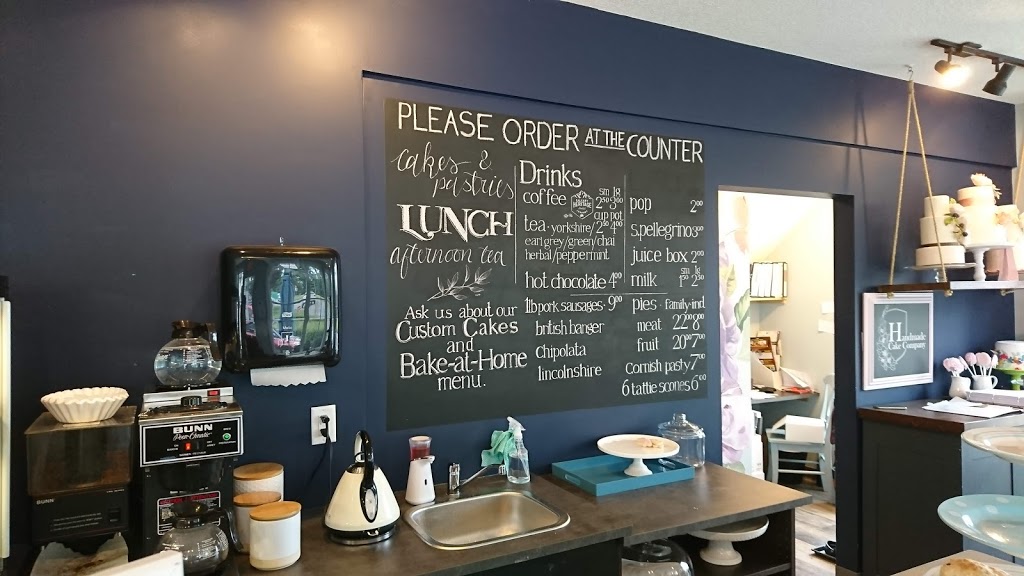 PLEASE ORDER AT THE COUNTER
cakes &
pastries
LUNCH
afternoon tea
Ask us about our
Custom Cakes
and
Bake-at-Home
menu.
Drinks
sm lg
coffee 2⁵⁰ 3⁰⁰
cup pot
tea - yorkshire/ 2⁵⁰ 4⁰⁰
earl grey/green/chai
herbal/peppermint
hot chocolate 4⁰⁰
pop 2⁰⁰
s.pellegrino 3⁰⁰
juice box 2⁰⁰
sm lg
milk 1⁵⁰ 2⁵⁰
1lb pork sausages 9⁰⁰
british banger
chipolata
lincolnshire
pies - family - ind.
meat 22⁰⁰ 8⁰⁰
fruit 20⁰⁰ 7⁰⁰
cornish pasty 7⁰⁰
6 tattie scones 6⁰⁰
BUNN
Pour-Omatic
BUNN
Handmade
Cake Company